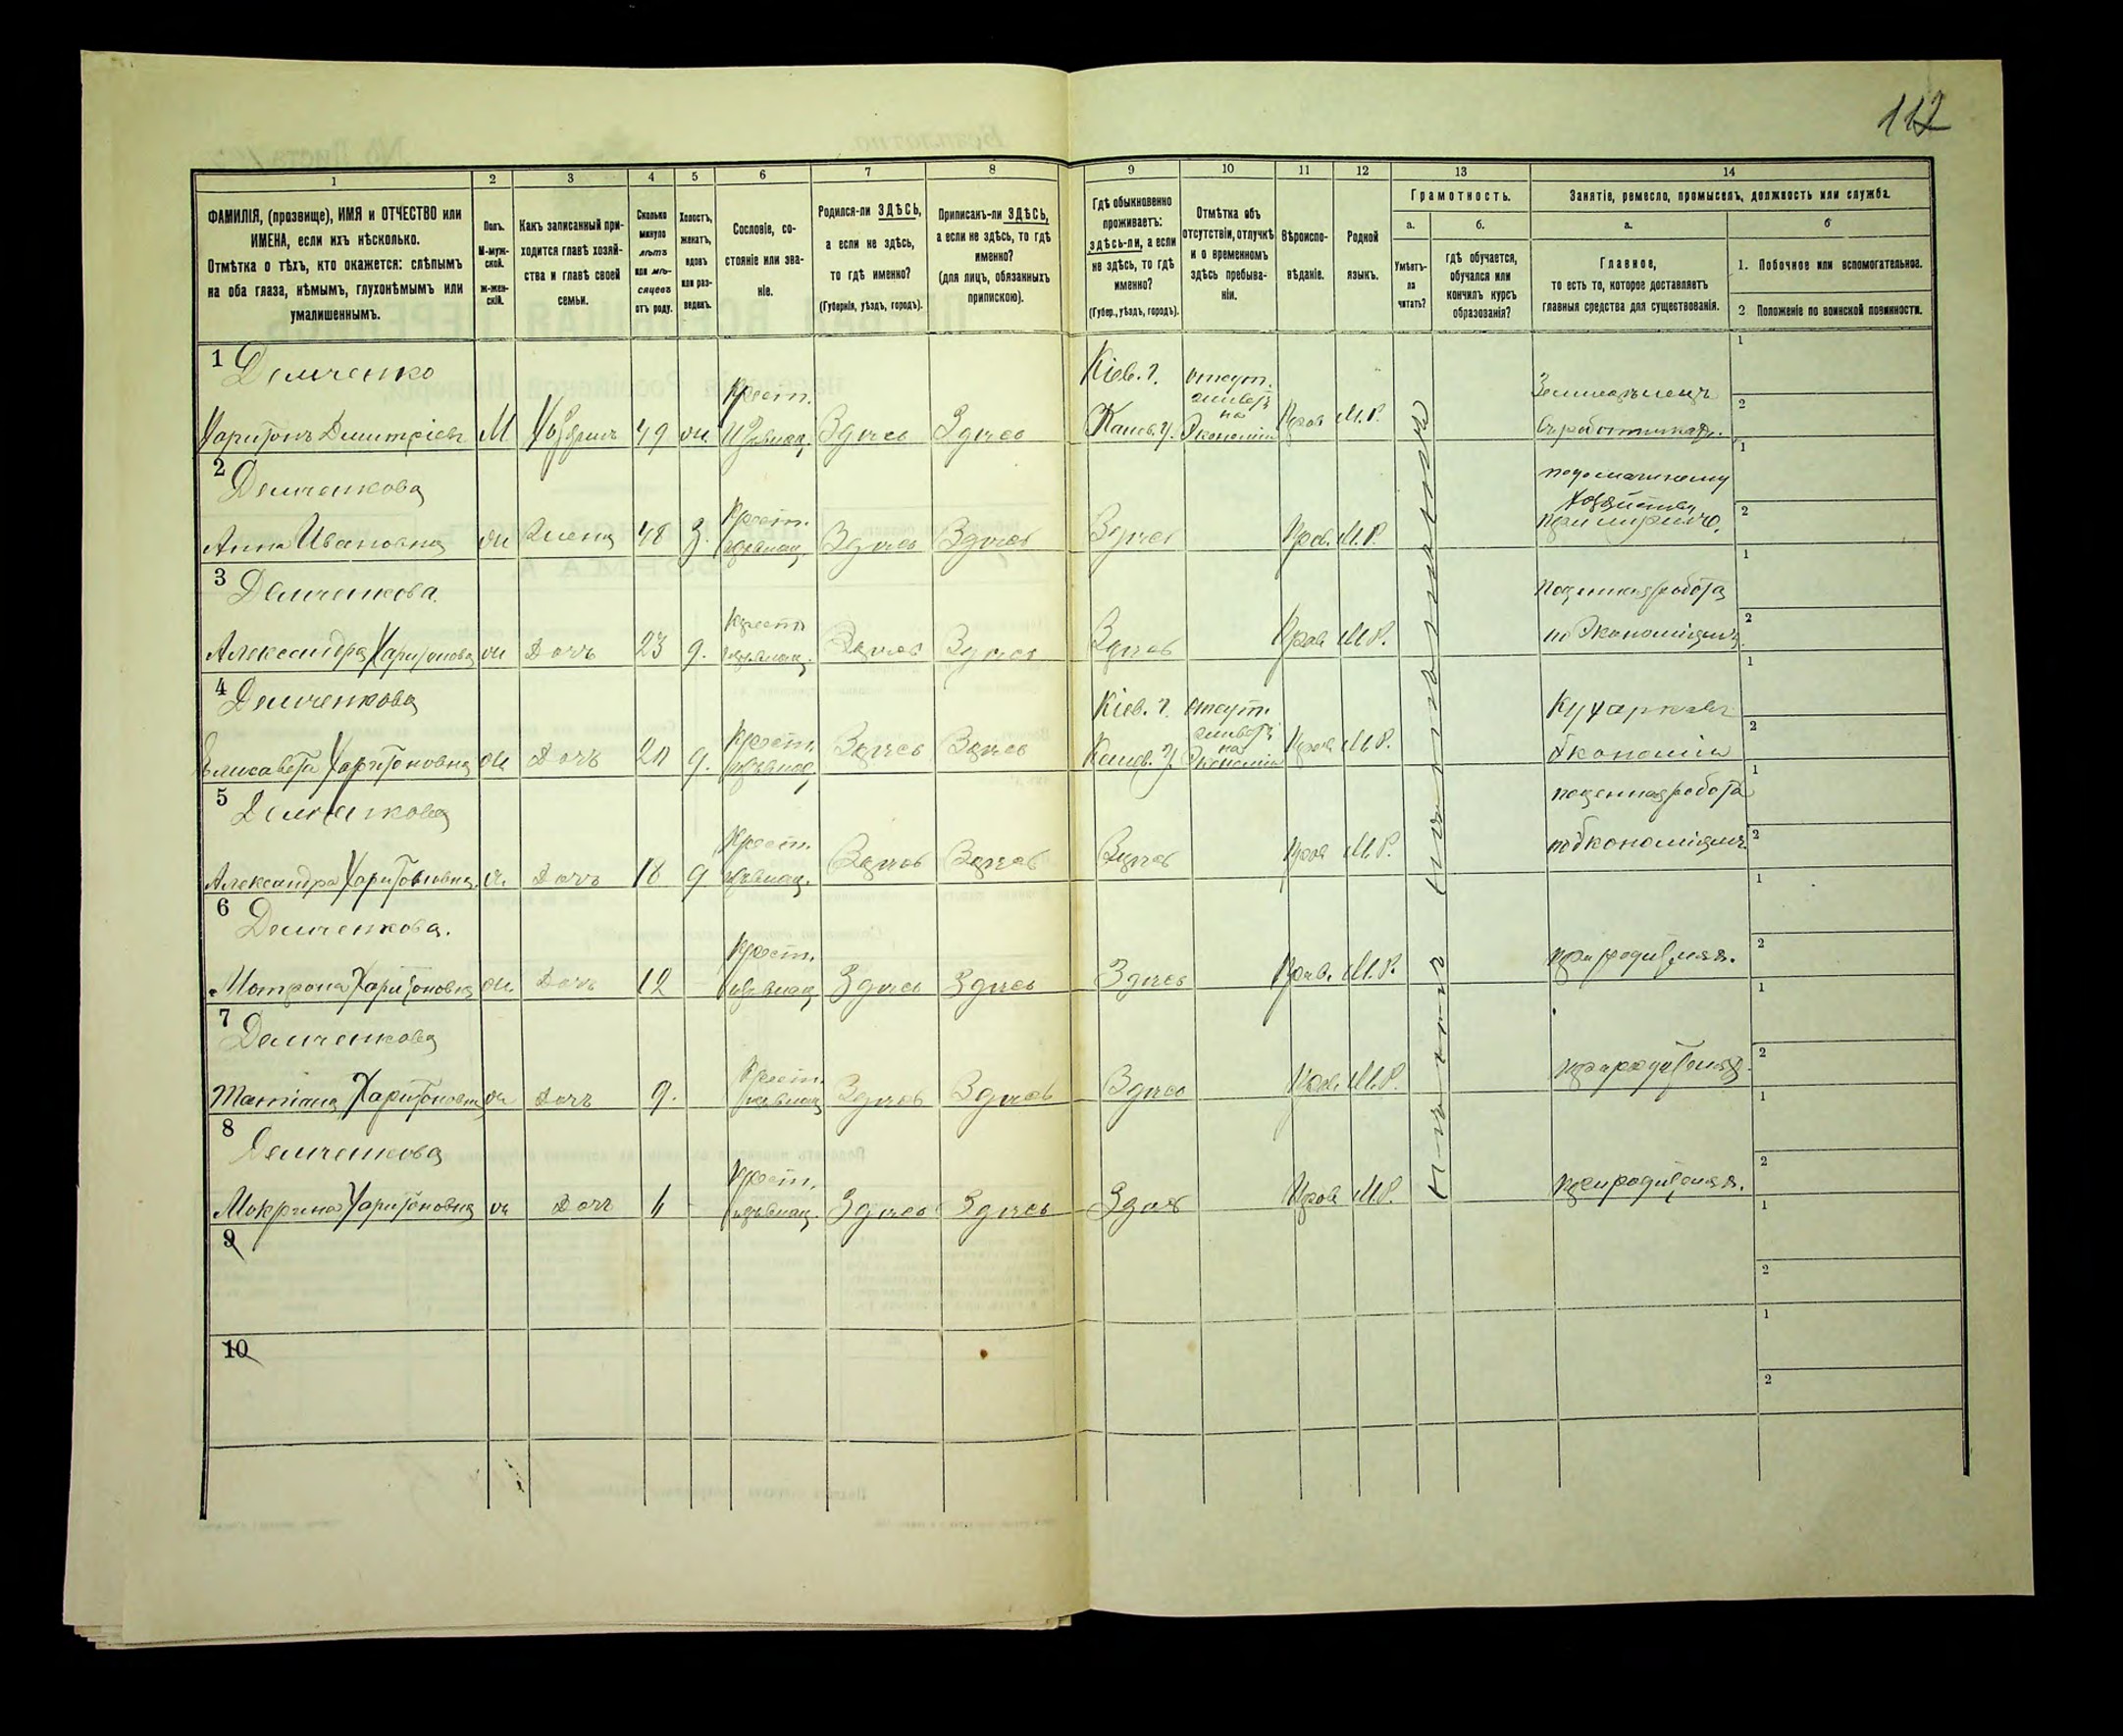 112
1 2 3 4 5 6 7 8 9 10 11 12 13 14
ФАМИЛІЯ, (прозвище), ИМЯ и ОТЧЕСТВО или ИМЕНА, если ихъ нѣсколько.
Отмѣтка о тѣхъ, кто окажется: слѣпымъ на оба глаза, нѣмымъ, глухонѣмымъ или умалишеннымъ.
Полъ.
М-муж-
ской.
ж-жен-
скій.
Какъ записанный при-
ходится главѣ хозяй-
ства и главѣ своей
семьи.
Сколько
минуло
лѣтъ
или мѣ-
сяцевъ
отъ роду.
Холостъ,
женатъ,
вдовъ
или раз-
веденъ.
Сословіе, со-
стояніе или зва-
ніе.
Родился-ли ЗДѢСЬ,
а если не здѣсь,
то гдѣ именно?
(Губернія, уѣздъ, городъ).
Приписанъ-ли ЗДѢСЬ,
а если не здѣсь, то гдѣ
именно?
(для лицъ, обязанныхъ
припискою).
Гдѣ обыкновенно
проживаетъ:
здѣсь-ли, а если
не здѣсь, то гдѣ
именно?
(Губер., уѣздъ, городъ).
Отмѣтка объ
отсутствіи, отлучкѣ
и о временномъ
здѣсь пребыва-
ніи.
Вѣроиспо-
вѣданіе.
Родной
языкъ.
Грамотность.
а.
Умѣетъ-
ли
читать?
б.
гдѣ обучается,
обучался или
кончилъ курсъ
образованія?
Занятіе, ремесло, промыселъ, должность или служба.
а.
Главное,
то есть то, которое доставляетъ
главныя средства для существованія.
б
1. Побочное или вспомогательное.
2 Положеніе по воинской повинности.
1 Демченко
Харитонъ Дмитріевъ М Хозяинъ 49 ж. Крест. Здѣсь Здѣсь Кіев. г. Канев. у. отсут. живетъ на Экономіи Прав М.Р. Земледѣлецъ
2 Демченкова
Анна Ивановна ж Жена 48 З. Крест. Здѣсь Здѣсь Здѣсь Прав. М.Р. хозяйству при мужѣ
3 Демченкова
Александра Харитонова ж Дочь 23 д. Крест Здѣсь Здѣсь Здѣсь Прав М.Р. Поденная работа по Экономіямъ
4 Демченкова
Елисавета Харитоновна ж Дочь 20 д. Крест. Здѣсь Здѣсь Кіев. г. Канев. у. отсут. живетъ на Экономіи Прав М.Р. Кухарка въ экономіи
5 Демченкова
Александра Харитоновна ж. Дочь 18 д Крест. Здѣсь Здѣсь Здѣсь Прав М.Р. поденная работа по экономіямъ
6 Демченкова.
Мотрона Харитоновна ж. Дочь 12 Крест. Здѣсь Здѣсь Здѣсь Прав. М.Р. при родителяхъ.
7 Демченкова
Татіана Харитоновна ж Дочь 9. Крест. Здѣсь Здѣсь Здѣсь Прав. М.Р. при родителяхъ.
8 Демченкова
Мокрина Харитоновна ж Дочь Крест. Здѣсь Здѣсь Здѣсь Прав М.Р. при родителяхъ.
9
10